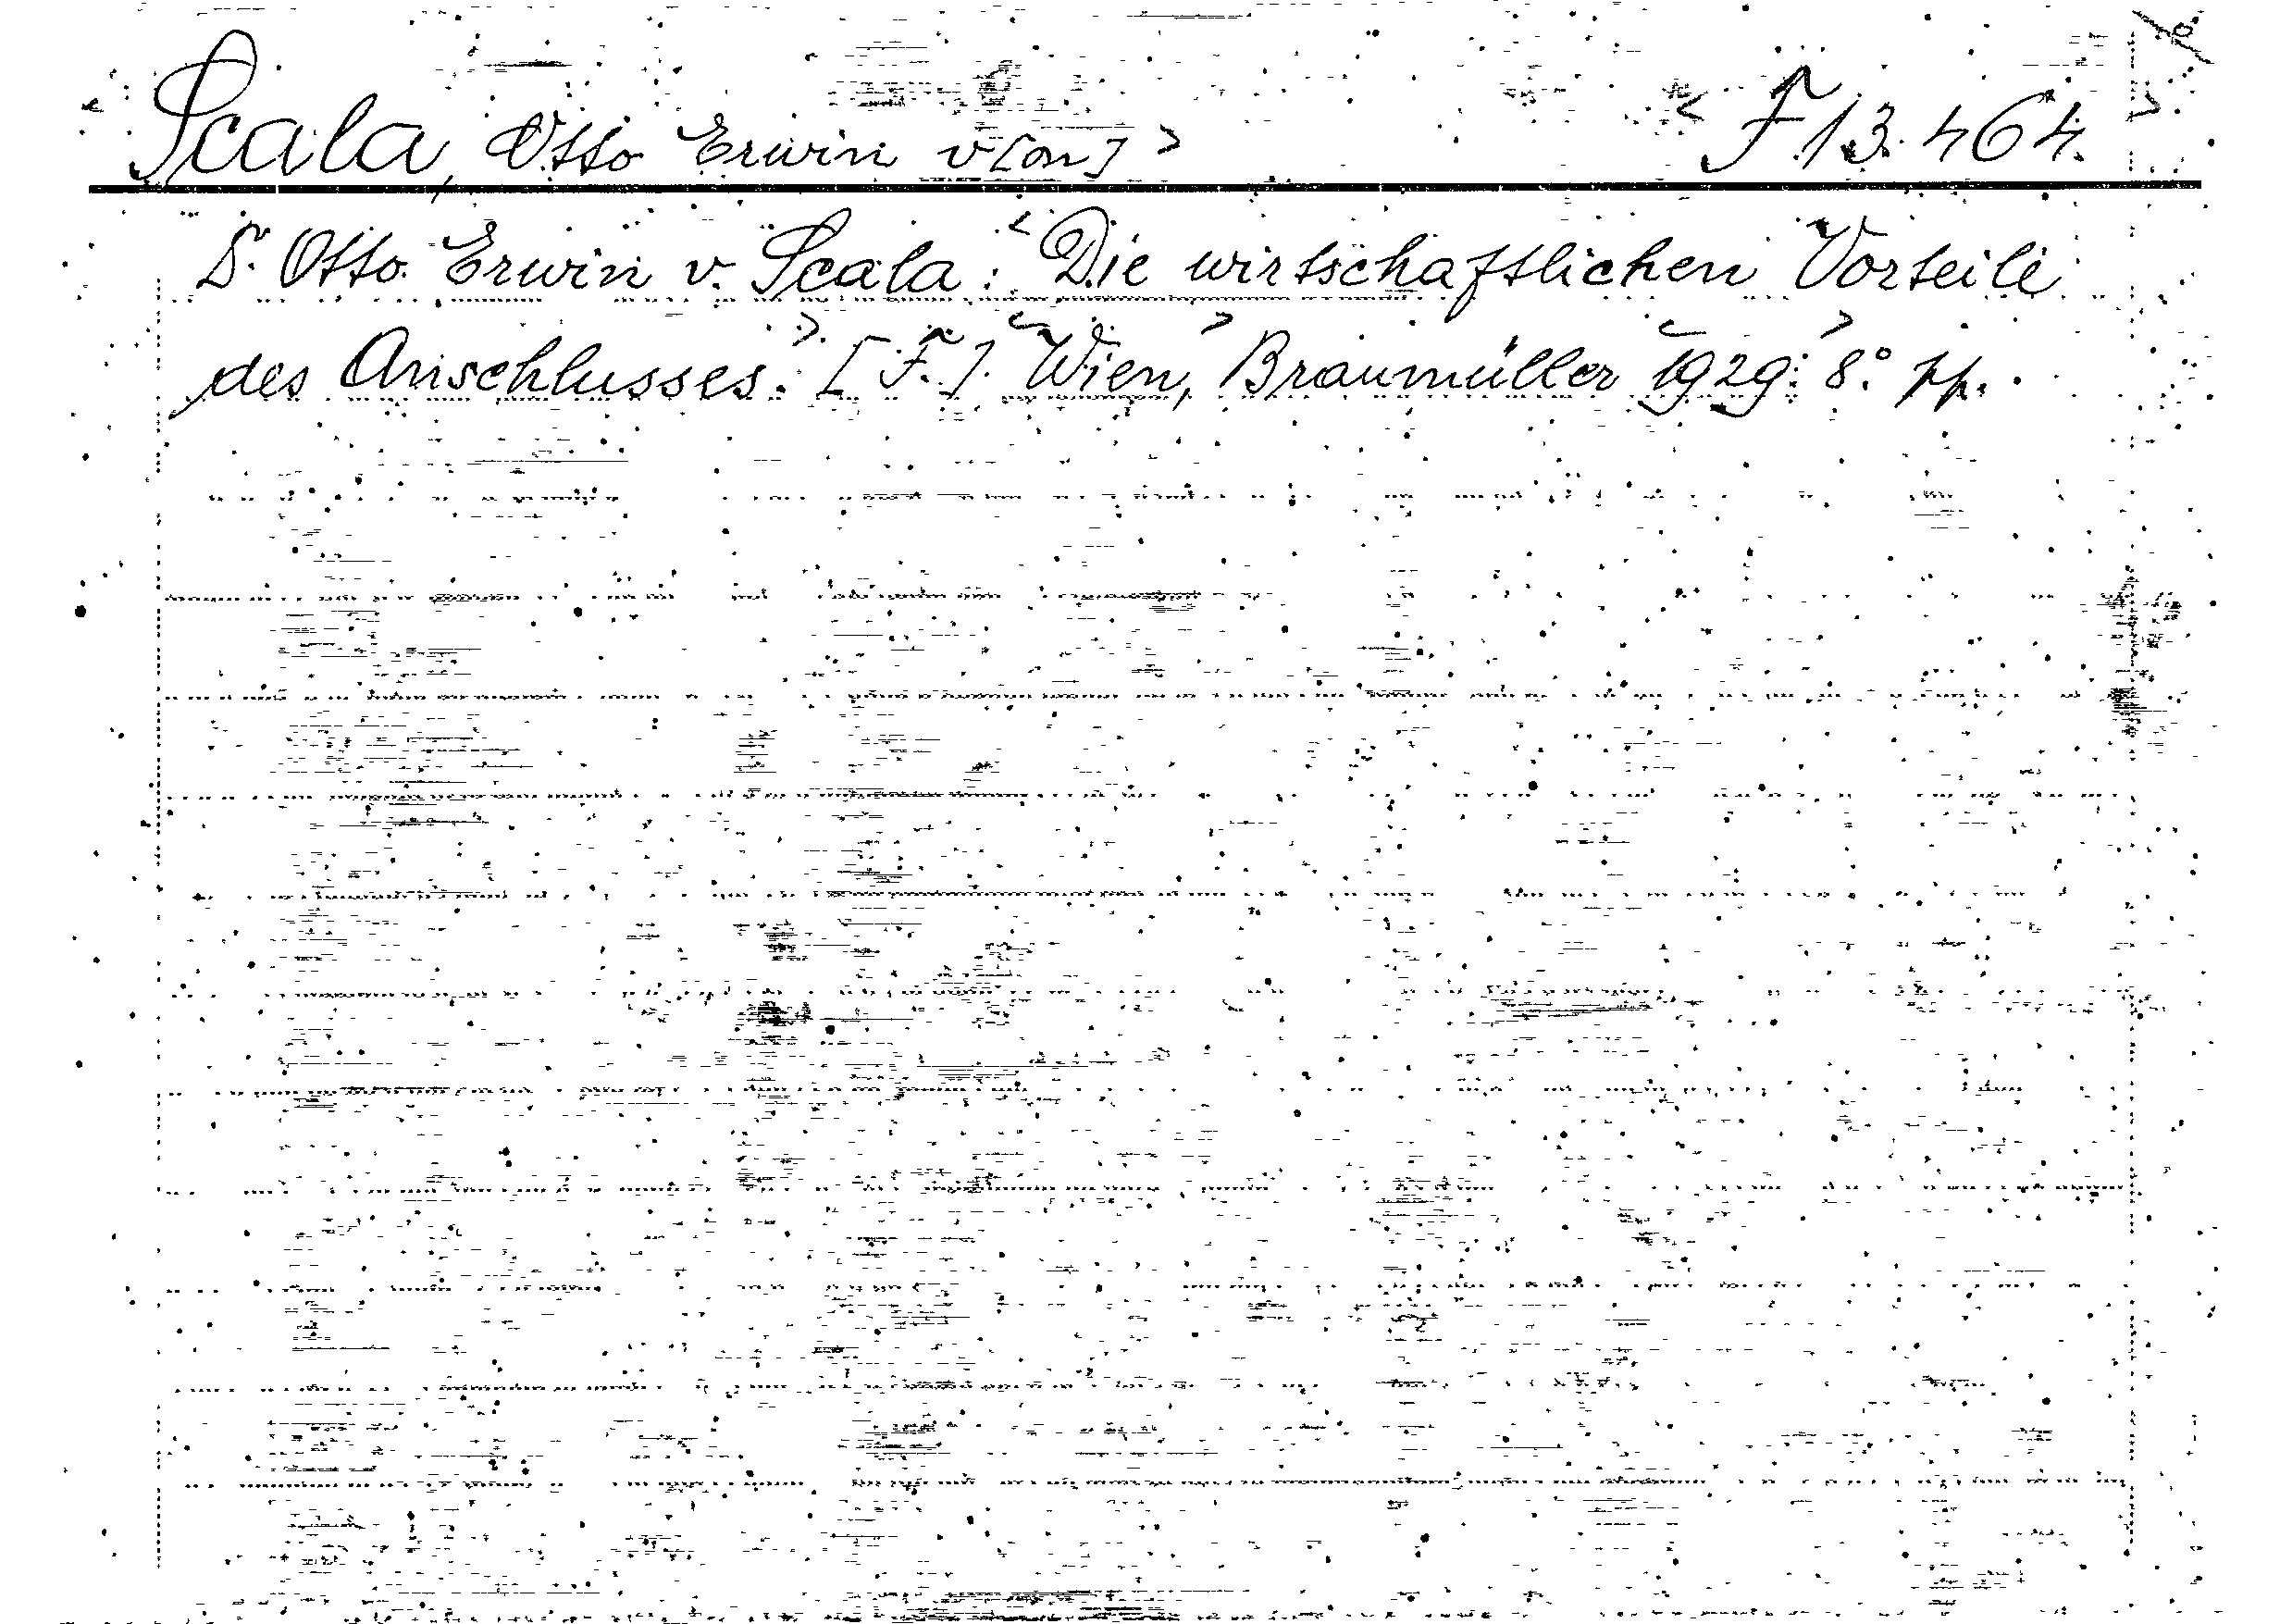 < Scala, Otto Erwin v[on] > < F 13.464. >
D. Otto Erwin v. Scala: < Die wirtschaftlichen Vorteile
des Anschlusses. > [F.]. < Wien, > Braumüller < 1929: > 8° pp.